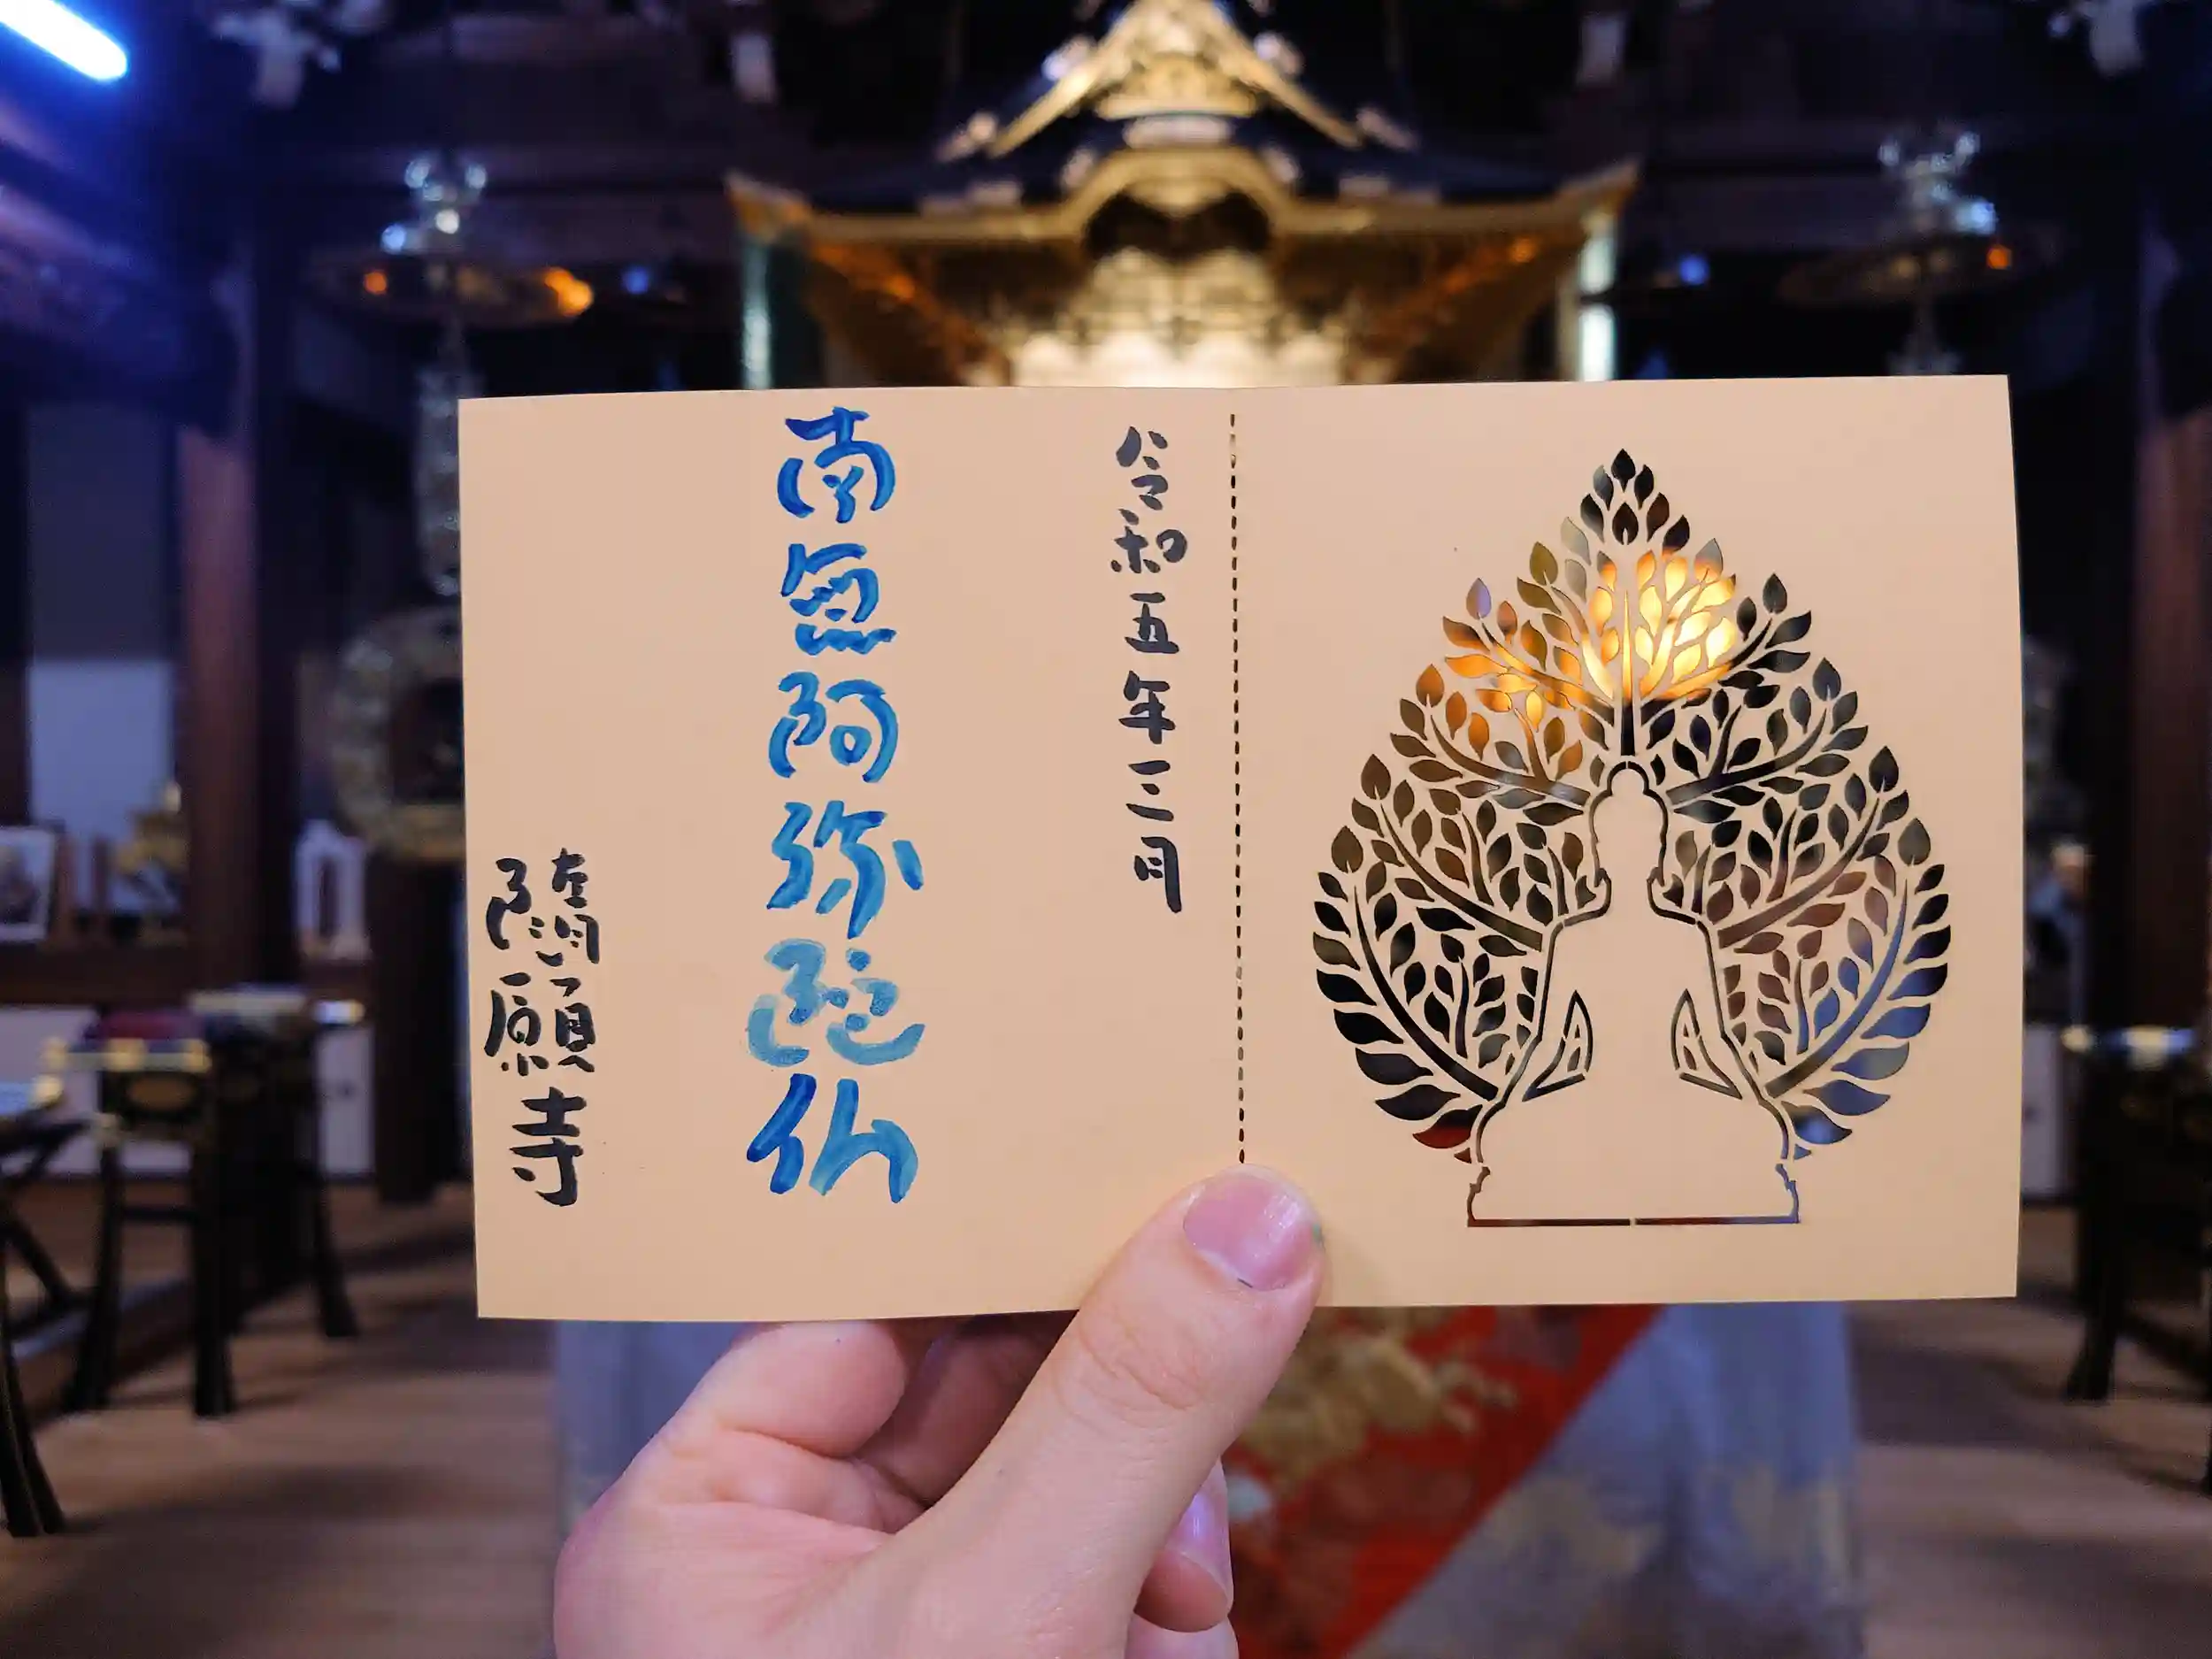 令和五年三月
南無阿弥陀仏
隨願寺